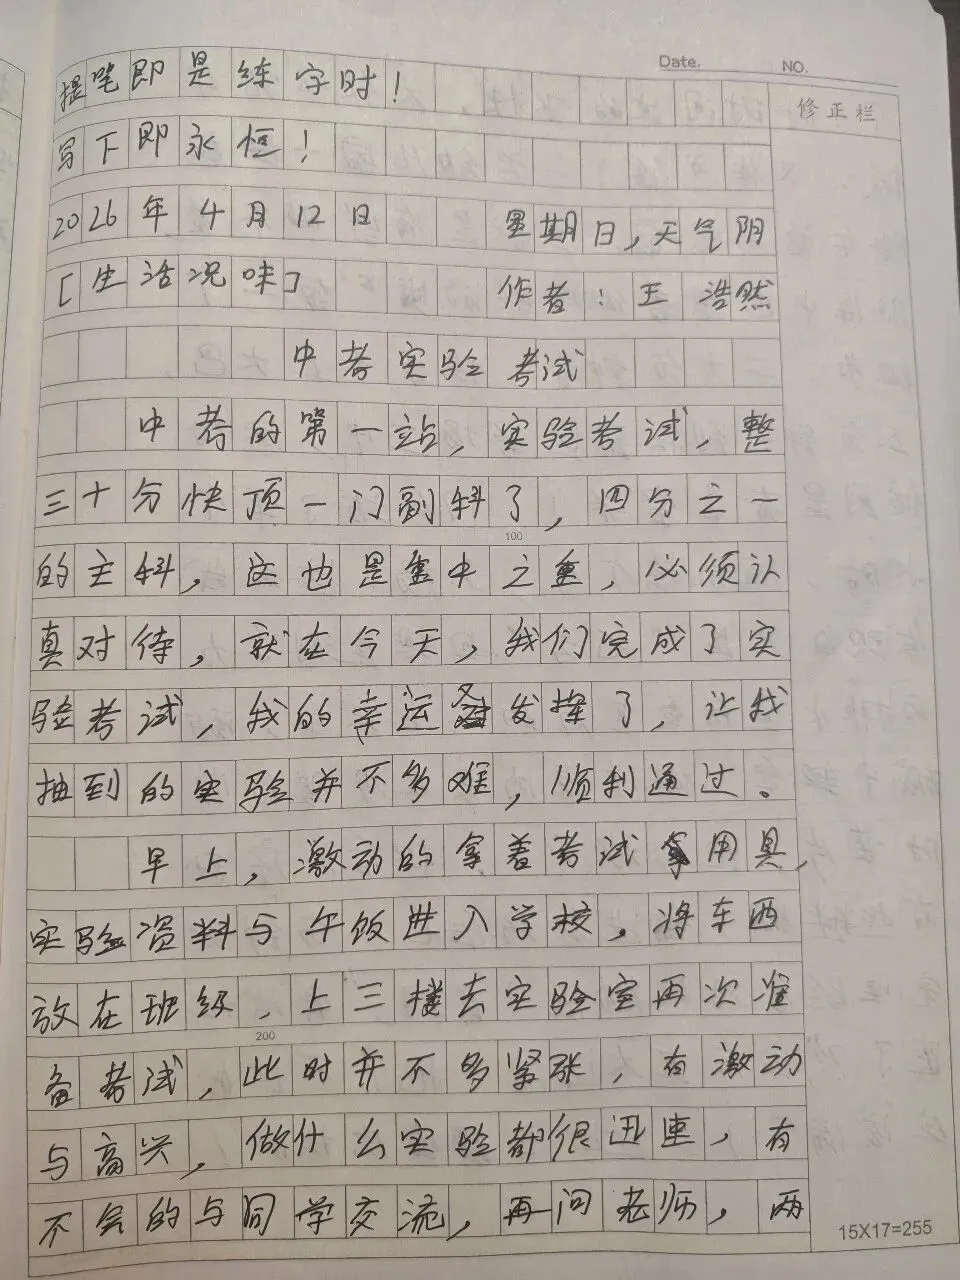 Date. NO.
修正栏
提笔即是练字时！
写下即永恒！
2026年4月12日 星期日，天气阴
[生活况味] 作者：王浩然
中考实验考试
中考的第一站，实验考试，整
三十分快顶一门副科了，四分之一
的主科，这也是重中之重，必须认
真对待，就在今天，我们完成了实
验考试，我的幸运发挥了，让我
抽到的实验并不多难，顺利通过。
早上，激动的拿着考试用具，
实验资料与午饭进入学校，将东西
放在班级，上三楼去实验室再次准
100
备考试，此时并不多紧张，有激动
200
与高兴，做什么实验都很迅速，有
不会的与同学交流，再问老师，两
15X17=255